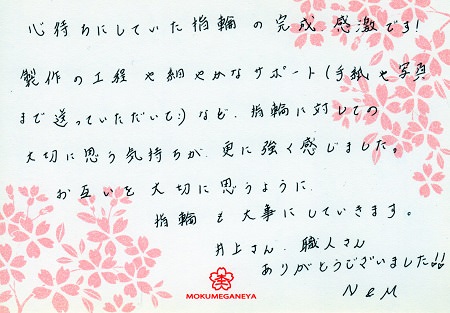 心待ちにしていた指輪の完成 感激です!
製作の工程や細やかなサポート(手紙や写真
まで送っていただいて:)など、指輪に対しての
大切に思う気持ちが、更に強く感じました。
お互いを大切に思うように、
指輪も大事にしていきます。
井上さん、職人さん
ありがとうございました!!
MOKUMEGANEYA
N&M